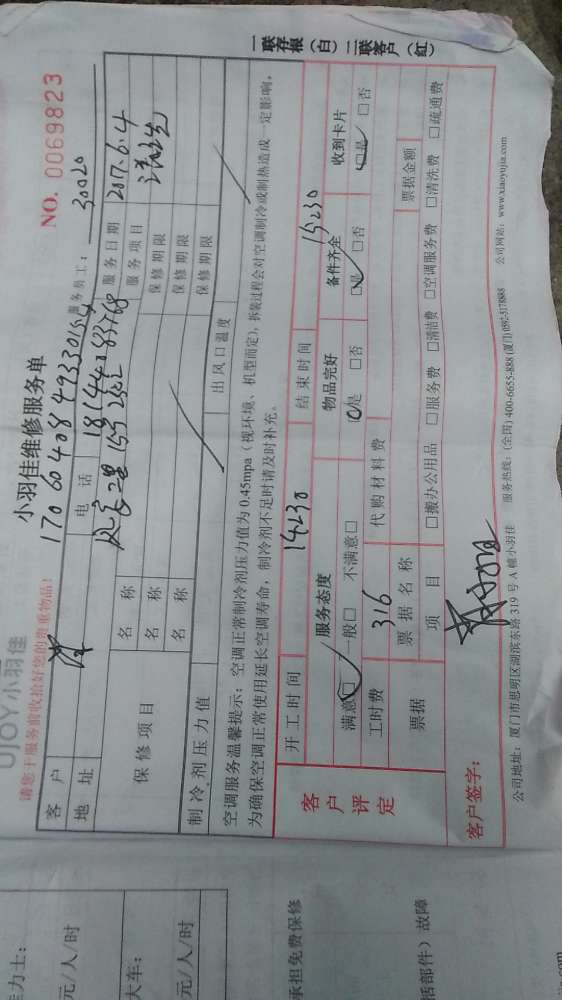 UJOY小羽佳
小羽佳维修服务单
NO. 0069823
请您于服务前收拾好您的贵重物品!
17060408493301554
服务员工: 30020
客户
电话 18144083768
服务日期 2017.6.4
地址
服务项目
保修项目
名称 保修期限
名称 保修期限
名称 保修期限
制冷剂压力值 出风口温度
空调服务温馨提示:空调正常制冷剂压力值为0.45mpa(视环境、机型而定),拆装过程会对空调制冷或制热造成一定影响,
为确保空调正常使用延长空调寿命,制冷剂不足时请及时补充。
客户评定
开工时间 14:30 结束时间 15:30
服务态度 物品完好 备件齐全 收到卡片
满意□ 一般□ 不满意□ □是 □否 □是 □否 □是 □否
工时费 316 代购材料费
票据 票据名称 票据金额
项目 □搬办公用品 □服务费 □清洁费 □空调服务费 □清洗费 □疏通费
客户签字:
公司地址:厦门市思明区湖滨东路319号A幢小羽佳 服务热线:(全国)400-6655-888(厦门)0592-5178885 公司网站:www.xiaoyujia.com
一联存根(白)二联客户(红)
元/人/时
大车:
元/人/时
承担免费保修
活部件)故障